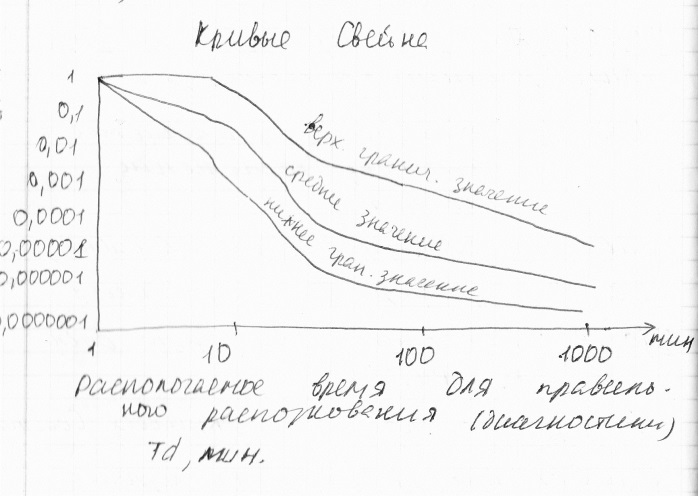 Кривые Свейна
1
0,1
0,01
0,001
0,0001
0,00001
0,000001
0,0000001
верх. гранич. значение
среднее значение
нижнее гран. значение
1 10 100 1000 мин
Распологаемое время для правиль-
ного распознования (диагностики)
Td, мин.